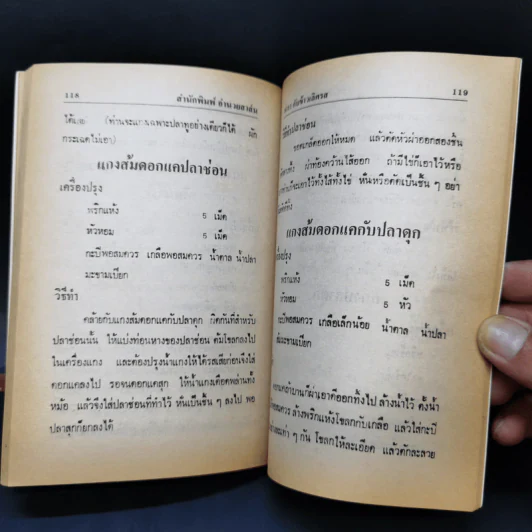 118 สำนักพิมพ์ อำนวยสาส์น
ได้เลย (ท่านจะแกงเฉพาะปลาทูอย่างเดียวก็ได้ ผัก
กระเฉดไม่เอา)
แกงส้มดอกแคปลาช่อน
เครื่องปรุง
พริกแห้ง 5 เม็ด
หัวหอม 5 เม็ด
กะปิพอสมควร เกลือพอสมควร น้ำตาล น้ำปลา
มะขามเปียก
วิธีทำ
คล้ายกับแกงส้มดอกแคกับปลาดุก ผิดกันที่สำหรับ
ปลาช่อนนั้น ให้แบ่งท่อนหางของปลาช่อน ต้มโขลกลงไป
ในเครื่องแกง และต้องปรุงน้ำแกงให้ได้รสเสียก่อนจึงใส่
ดอกแคลงไป รอจนดอกแคสุก ให้น้ำแกงเดือดพล่านทั้ง
หม้อ แล้วจึงใส่ปลาช่อนที่ทำไว้ หั่นเป็นชิ้น ๆ ลงไป พอ
ปลาสุกก็ยกลงได้
119
ปลาช่อน
ขอดเกล็ดออกให้หมด แล้วตัดหัวผ่าออกสองชิ้น
ผ่าท้องควานไส้ออก ถ้ามีไข่ก็เอาไว้หรือ
จะเอาไว้ทั้งไส้ทั้งไข่ หั่นหรือตัดเป็นชิ้น ๆ อย่า
แกงส้มดอกแคกับปลาดุก
พริกแห้ง 5 เม็ด
หัวหอม 5 หัว
กะปิพอสมควร เกลือเล็กน้อย น้ำตาล น้ำปลา
มะขามเปียก
ก็ผ่าเอาดีออกทิ้งไป ล้างน้ำไว้ ตั้งน้ำ
พอสมควร ล้างพริกแห้งโขลกกับเกลือ แล้วใส่กะปิ
เท่า ๆ กัน โขลกให้ละเอียด แล้วตักละลาย